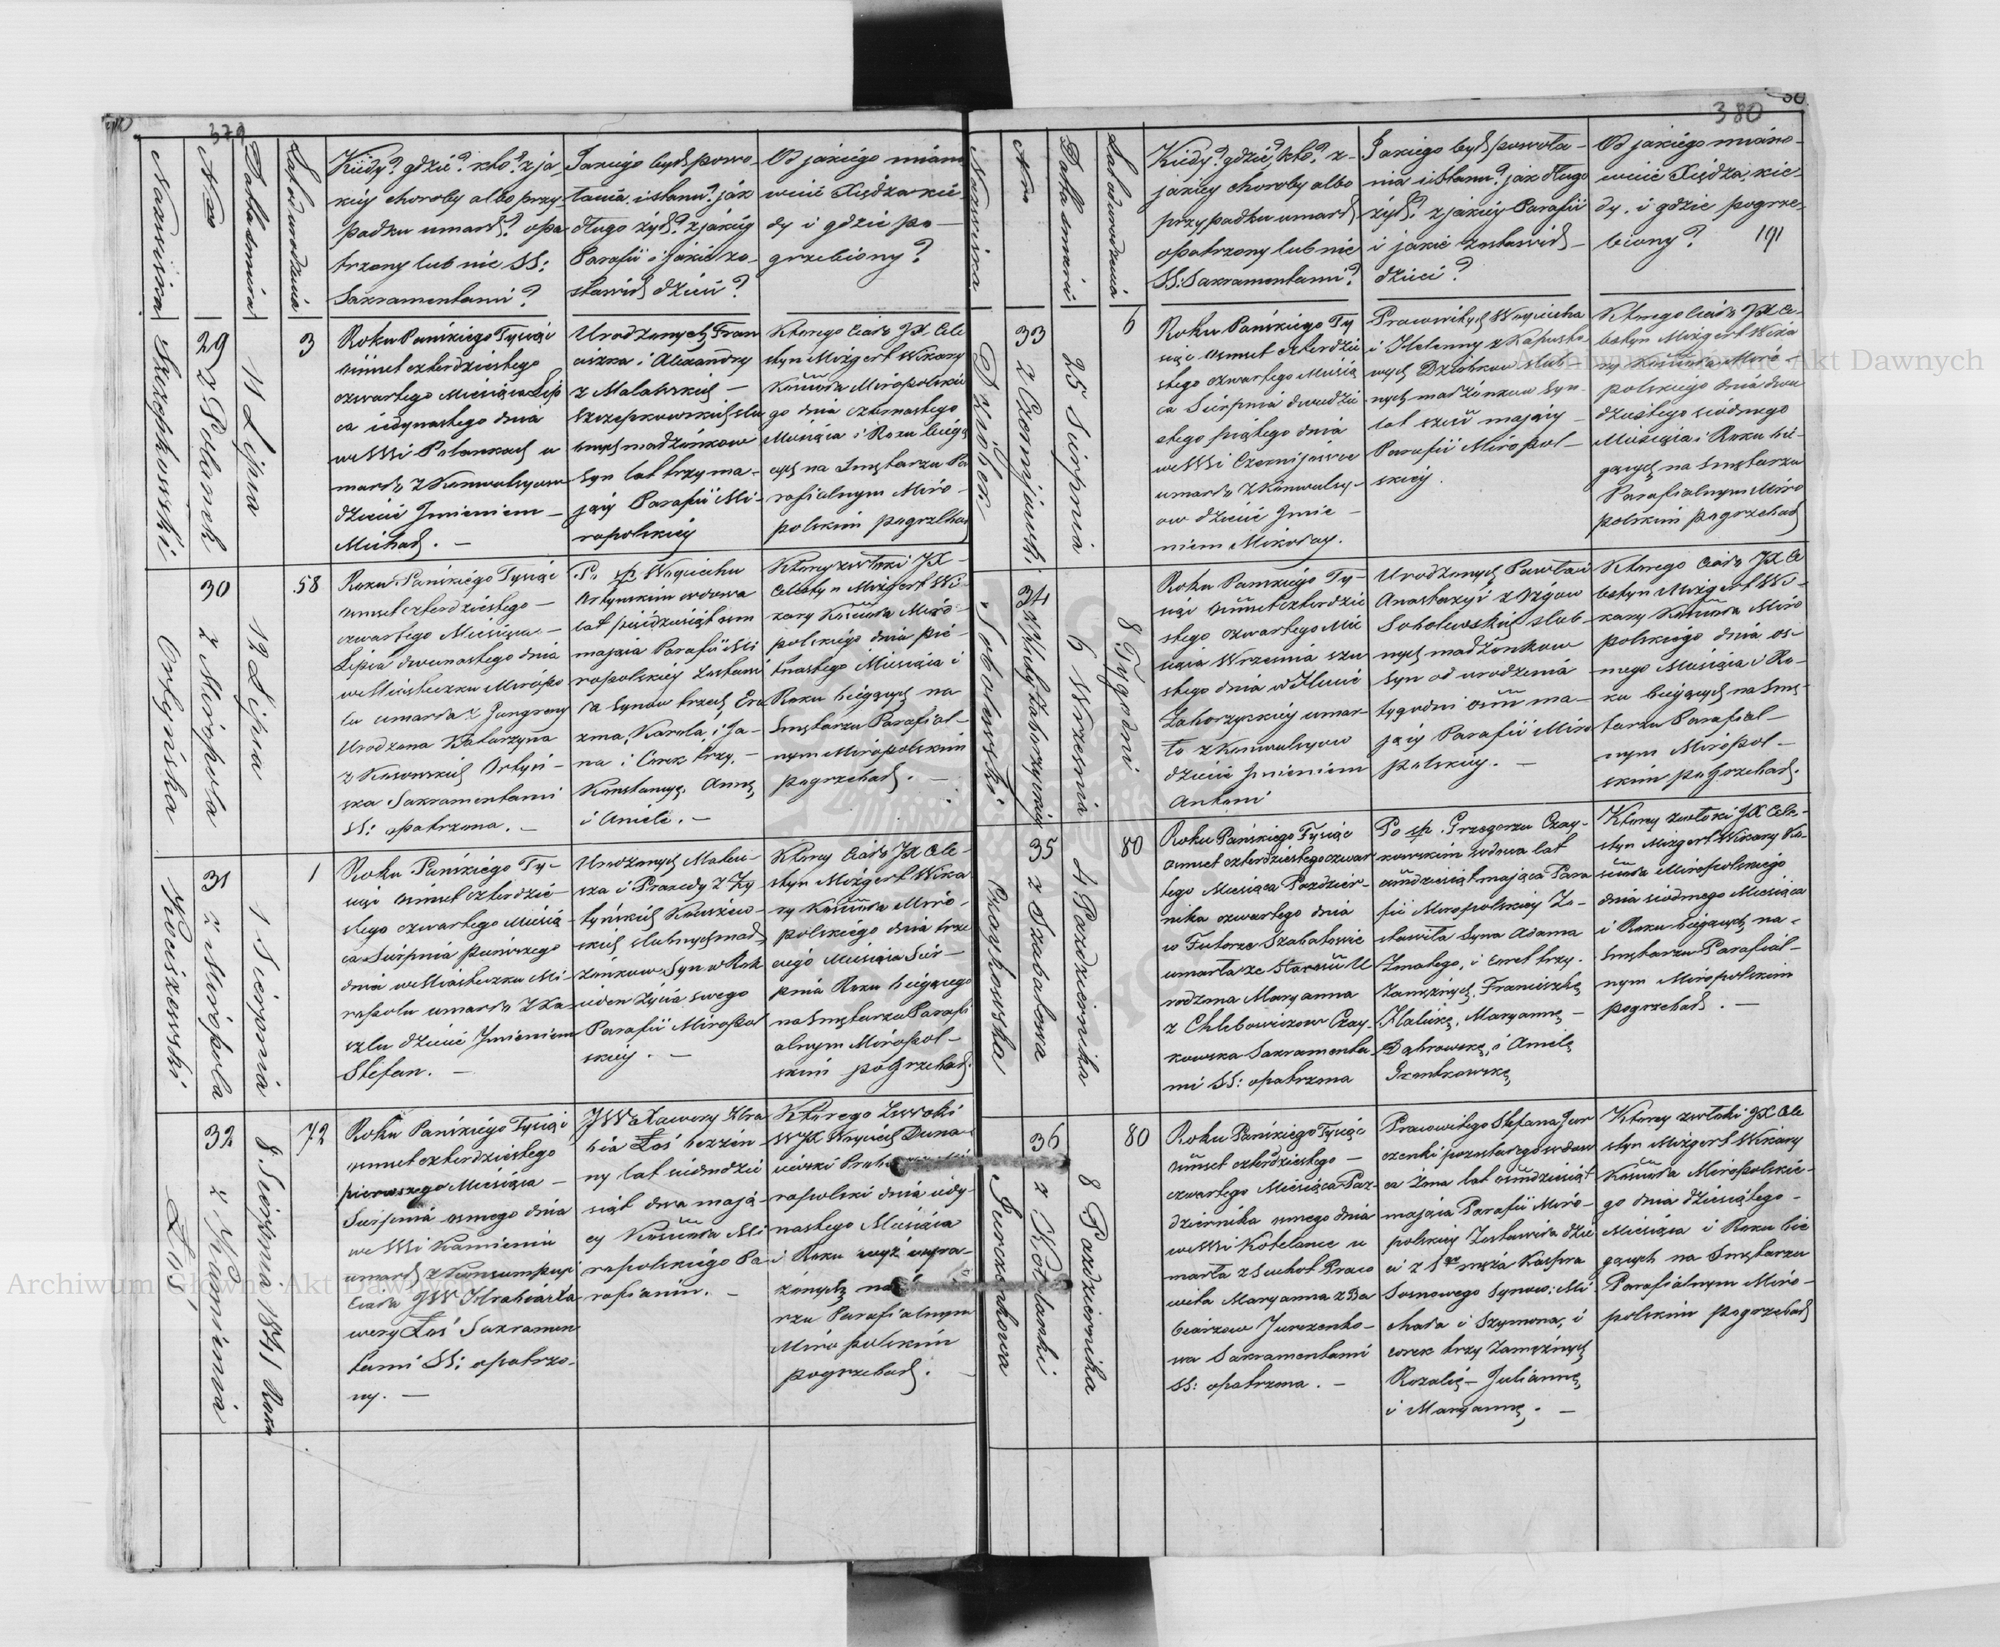 379
Nazwiska
Nro
Datta śmierci
Lat od urodzenia
Kiedy? gdzie? kto? z ja
kiéy choroby albo przy
padku umarł? opa
trzony lub nie SS:
Sakramentami?
Jakiego był powo
łania i stanu? jak
długo żył? z jakiéy
Parafii i jakie zo
stawił dzieci?
Od jakiego miano
wicie Xiędza kie
dy i gdzie po
grzebiony?
Szczepkowski
29
z Polanek
11 Lipca
3
Roku Pańskiego Tysiąc
ośmset czterdziestego
czwartego Miesiąca Lip
ca iedynastego dnia
we Wsi Polankach u
marło z Konwulsyow
dziecie Jmieniem
Michał.
Urodzonych Fran
ciszka i Alexandry
z Malawskich
Szczepkowskich slu
bnych małżonkow
Syn lat trzy ma
jący Parafii Mi
ropolskiey
Ktorego Ciało JX Cele
styn Mizgert Wikary
Kościoła Miropolskie
go dnia czternastego
Miesiąca i Roku bieżą
cych na Smętarzu Pa
rafialnym Miro
polskim pogrzebał
Ortyńska
30
z Miropola
12 Lipca
58
Roku Pańskiego Tysiąc
osmset czterdziestego
czwartego Miesiąca
Lipca dwunastego dnia
w Miasteczku Miropo
lu umarła z Gangreny
Urodzona Katarzyna
z Kosowskich Ortyń
ska Sakramentami
SS: opatrzona.
Po śp Woyciechu
Ortynskim wdowa
lat pięćdziesiąt osm
mająca Parafii Mi
ropolskiey Zostawi
ła Synow trzech Era
zma, Karola, i Ja
na i Corek trzy,
Konstancyę, Annę
i Anielę.
Ktorey zwłoki JX
Celestyn Mizgert Wi
kary Kościoła Miro
polskiego dnia pie
tnastego Miesiąca i
Roku bieżących na
Smętarzu Parafial
nym Miropolskim
pogrzebał.
Kościszewski
31
z Miropola
1 Sierpnia
1
Roku Pańskiego Ty
siąc ośmset czterdzie
stego czwartego Miesią
ca Sierpnia pierwszego
dnia w Miasteczku Mi
ropolu umarło z Ka
szlu dziecie Jmieniem
Stefan.
Urodzonych Mateu
sza i Praxedy z Ży
tyńskich Kościszew
skich slubnych mał
żonkow Syn w Rok
ieden życia swego
Parafii Miropol
skiey.
Ktorey Ciało JX Cele
styn Mizgert Wika
ry Kościoła Miro
polskiego dnia trze
ciego Miesiąca Sier
pnia Roku bieżącego
na Smętarzu Parafi
alnym Miropol
skim pogrzebał.
Łoś
32
z Kamienia
8 Sierpnia 1841 Roku
72
Roku Pańskiego Tysiąc
osmset czterdziestego
pierwszego Miesiąca
Sierpnia osmego dnia
we Wsi Kamieniu
umarł z Konsumpcyi
Ciała JW Hrabia Xa
wery Łoś Sakramen
tami SS: opatrzo
ny.
JW Xawery Hra
bia Łoś bezżen
ny lat siedmdzie
siąt dwa mają
cy Kościoła Mi
ropolskiego Pa
rafianin.
Ktorego Zwłoki
WJX Woyciech Duna
iewski
ropolski dnia iedy
nastego Miesiąca
i Roku wyż wyra
żonych na
rzu Parafialnym
Miropolskim
pogrzebał.
380
191
Nazwiska
Nro
Datta śmierci
Lat od urodzenia
Kiedy? gdzie, kto? z
jakiey choroby albo
przypadku umarł
opatrzony lub nie
SS: Sakramentami?
Jakiego był powoła
nia i stanu? jak długo
żył? z jakiey Parafii
i jakie zostawił
dzieci?
Od jakiego miano
wicie Xiędza, kie
dy, i gdzie pogrze
biony?
Dziober
33
z Czernijowki
25 Sierpnia
6
Roku Pańskiego Ty
siąc osmset czterdzie
stego czwartego Miesią
ca Sierpnia dwudzie
stego piątego dnia
we Wsi Czernijowce
umarło z Konwulsy
ow dziecie Jmie
niem Mikołay.
Pracowitych Woyciecha
i Helenny z Kapusto
wych Dziobrow slub
nych małżonkow Syn
lat sześć mający
Parafii Miropol
skiey.
Ktorego Ciało JX Ce
lestyn Mizgert Wika
ry Kościoła Miro
polskiego dnia dwu
dziestego siodmego
Miesiąca i Roku bie
żących na Smętarzu
Parafialnym Miro
polskim pogrzebał
Sobolewski
34
z Huty Zaborzyckiey
6 Września
8 Tygodni
Roku Pańskiego Ty
siąc ośmset czterdzie
stego czwartego Mie
siąca Września szo
stego dnia w Hucie
Zaborzyckiey umar
ło z Konwulsyow
dziecie Jmieniem
Antoni
Urodzonych Pawła i
Anastazyi z Bzyow
Sobolewskich slub
nych małżonkow
Syn od urodzenia
tygodni ośm ma
jący Parafii Miro
polskiey.
Ktorego Ciało JX Ce
lestyn Mizgert Wi
kary Kościoła Miro
polskiego dnia os
mego Miesiąca i Ro
ku bieżących na Smę
tarzu Parafial
nym Miropol
skim pogrzebał.
Czaykowska
35
z Szabatowa
4 Pazdziernika
80
Roku Pańskiego Tysiąc
osmset czterdziestego czwar
tego Miesiąca Pazdzier
nika czwartego dnia
w Futorze Szabatowie
umarła ze starości U
rodzona Maryanna
z Chlebowiczow Czay
kowska Sakramenta
mi SS: opatrzona
Po śp. Grzegorzu Czay
kowskim wdowa lat
ośmdziesiąt mająca Para
fii Miropolskiey Zo
stawiła Syna Adama
Zmałego, i Corek trzy
Zamężnych, Franciszkę
Halicką, Maryannę
Dąbrowską, i Anielę
Grembowską
Ktorey zwłoki JX Cele
styn Mizgert Wikary Ko
ścioła Miropolskiego
dnia siodmego Miesiąca
i Roku bieżących na
Smętarzu Parafial
nym Miropolskim
pogrzebał.
Jurczenkowa
36
z Kotelanki
8 Pazdziernika
80
Roku Pańskiego Tysiąc
ośmset czterdziestego
czwartego Miesiąca Paz
dziernika osmego dnia
we Wsi Kotelance u
marła z Suchot Praco
wita Maryanna z Ba
biarzow Jurczenko
wa Sakramentami
SS: opatrzona.
Pracowitego Stefana Jur
czenki pozostałego wdow
ca żona lat ośmdziesiąt
mająca Parafii Miro
polskiey Zostawiła dzie
ci z 1go męża Kaspra
Sosnowego Synow: Mi
chała i Szymona, i
corek trzy Zamężnych
Rozalię, Juliannę,
i Maryannę.
Ktorey zwłoki JX Cele
styn Mizgert Wikary
Kościoła Miropolskie
go dnia dziesiątego
Miesiąca i Roku bie
żących na Smętarzu
Parafialnym Miro
polskim pogrzebał
Archiwum Główne Akt Dawnych
Archiwum Główne Akt Dawnych